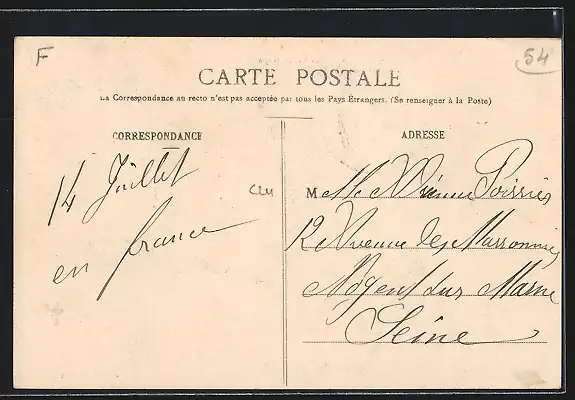 F
54
CARTE POSTALE
La Correspondance au recto n'est pas acceptée par tous les Pays Étrangers. (Se renseigner à la Poste)
CORRESPONDANCE
ADRESSE
14 Juillet
en france
M Mlle Poirrier
12 Avenue des Marronniers
Nogent sur Marne
Seine